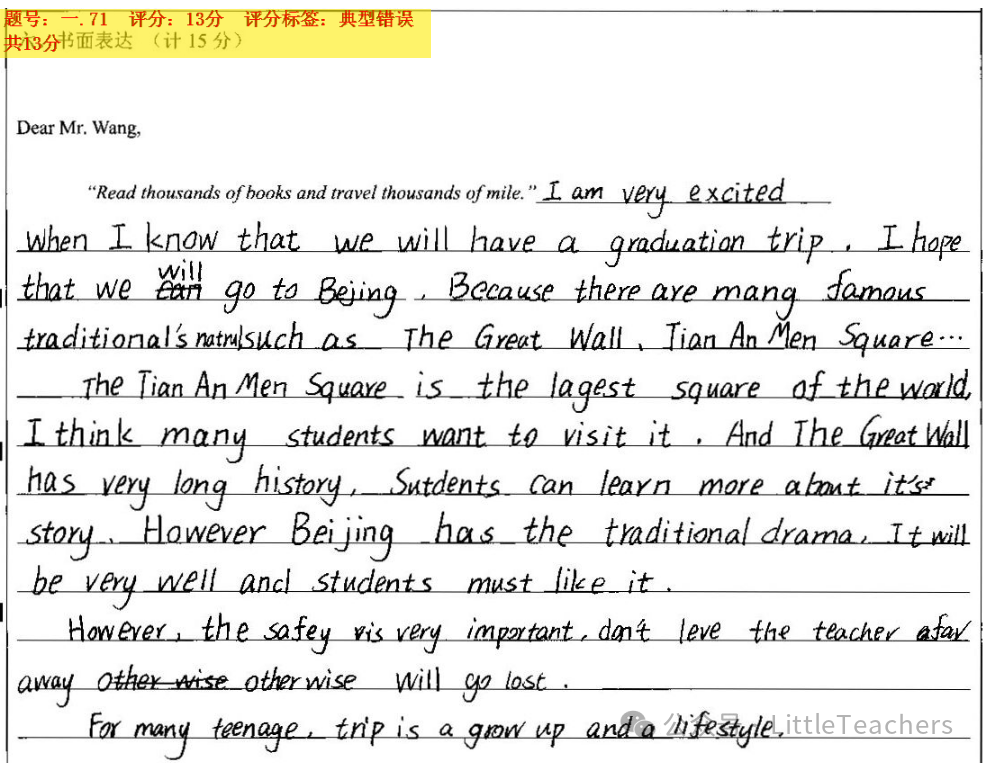 题号：一.71 评分：13分 评分标签：典型错误
共13分 书面表达 （计 15 分）
Dear Mr. Wang,
“Read thousands of books and travel thousands of mile.” I am very excited
when I know that we will have a graduation trip. I hope
that we will go to Bejing. Because there are mang famous
traditional's such as The Great Wall、Tian An Men Square…
The Tian An Men Square is the lagest square of the world,
I think many students want to visit it. And The Great Wall
has very long history, Sutdents can learn more about it's
story. However Beijing has the traditional drama. It will
be very well and students must like it.
However, the safey is very important, don't leve the teacher afar
away other wise otherwise will go lost.
For many teenage, trip is a grow up and a lifestyle.
公众号 LittleTeachers